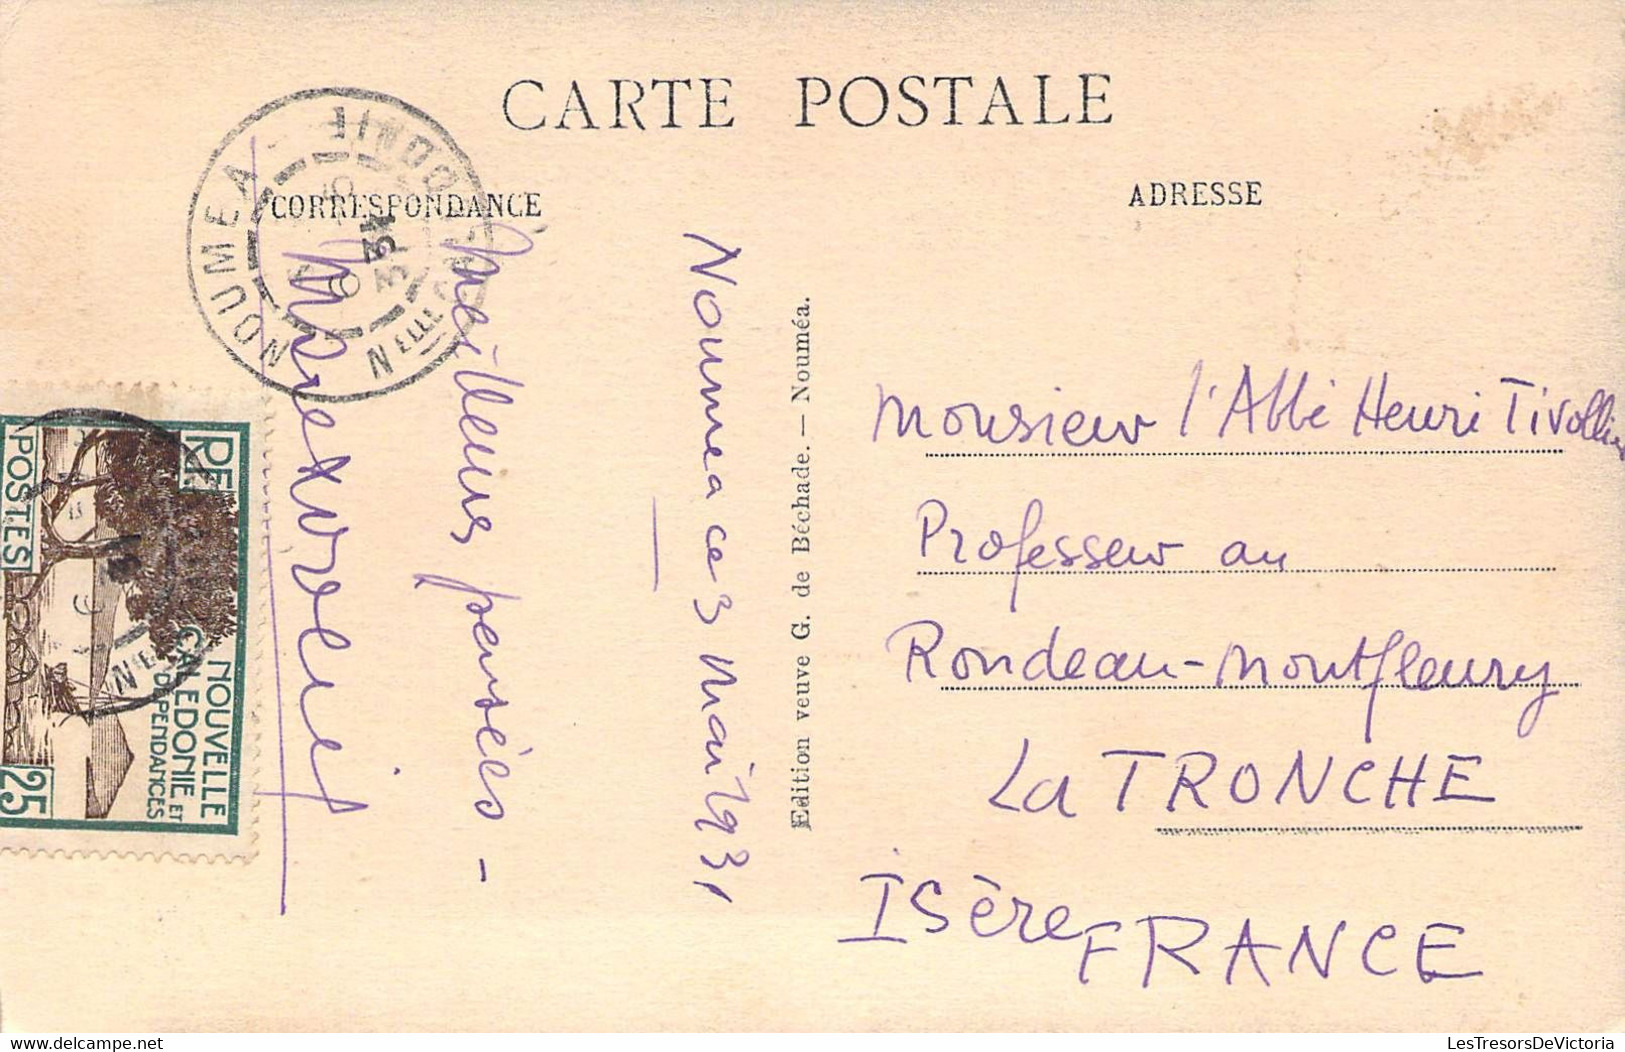 CARTE POSTALE
CORRESPONDANCE
ADRESSE
Nouméa ce 3 Mai 1931
Meilleures pensées -
Edition veuve G. de Béchade. — Nouméa.
Monsieur l'Abbé Henri Tivollier
Professeur au
Rondeau-Montfleury
La TRONCHE
ISère FRANCE
NOUMEA
Nelle
RF
POSTES
NOUVELLE
CALEDONIE ET
DEPENDANCES
25
LesTresorsDeVictoria